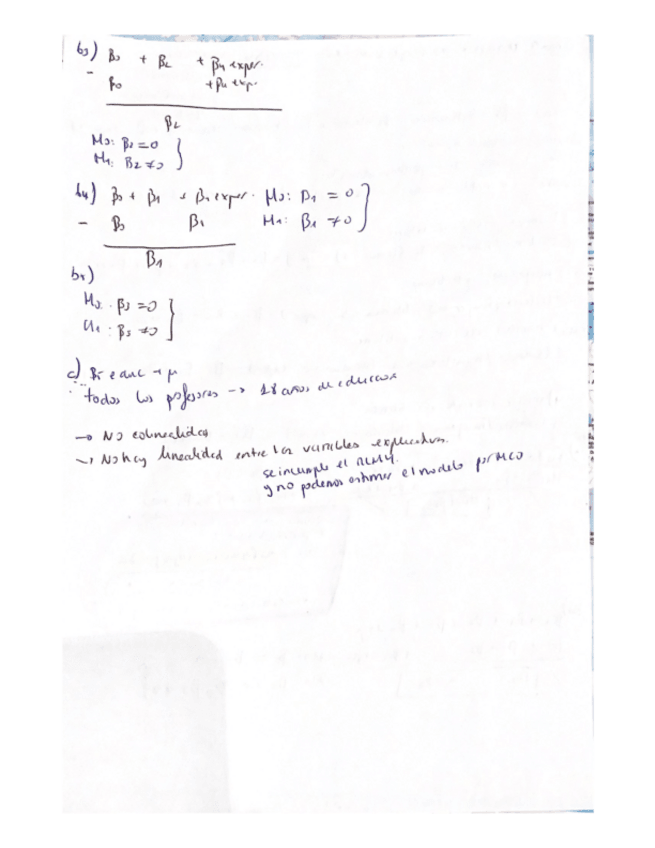 b3) β0 + β2 + β4 exper.
- β0 + β4 exp.
β2
H0: β2 = 0
H1: β2 ≠ 0 }
b4) β0 + β1 + β4 exper. H0: β1 = 0
- β0 β1 H1: β1 ≠ 0 }
β1
b5)
H0: β3 = 0
H1: β3 ≠ 0 }
c) educ + μ
todos los profesores → 18 años de educación
→ No colinealidad
→ No hay linealidad entre las variables explicativas.
se incumple el
y no podemos estimar el modelo por MCO